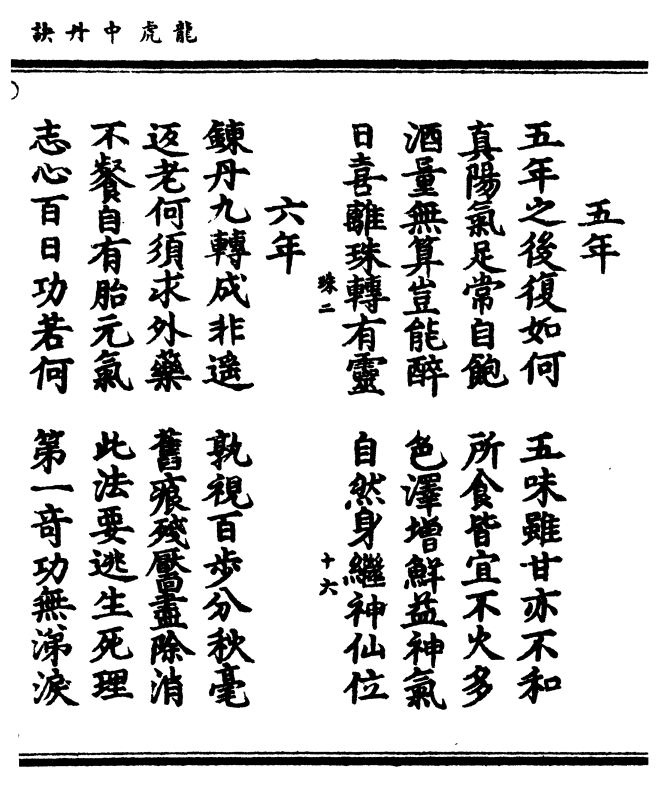 龍虎中丹訣
五年
五年之後復如何　五味雖甘亦不和
真陽氣足常自飽　所食皆宜不火多
酒量無算豈能醉　色澤增鮮益神氣
日喜離珠轉有靈　自然身繼神仙位
珠二　十六
六年
鍊丹九轉成非遥　孰視百步分秋毫
返老何須求外藥　舊痕殘靨盡除消
不餐自有胎元氣　此法要逃生死理
志心百日功若何　第一奇功無涕淚